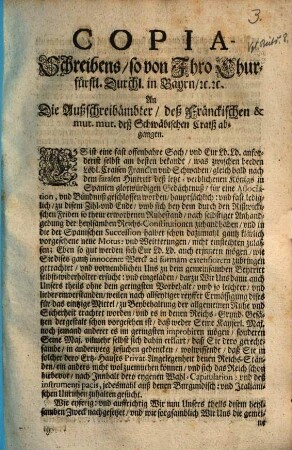 3.
COPIA
Schreibens / so von Ihro Chur-
fürstl. Durchl. in Bayrn / ꝛc. ꝛc.
An
Die Außschreibämbter / deß Fränckischen &
mut. mut. deß Schwäbischen Craiß ab-
gangen.
ES ist eine fast offenbahre Sach / und Eur Ld. Ld. anfor-
derist selbst am besten bekandt / was zwischen beeden
löbl. Craisen Francken und Schwaben / gleich bald nach
dem fatalen Hintritt deß letzt-verblichenen Königs in
Spanien glorwürdigen Gedächtnuß / für eine Associa-
tion, und Bündnuß geschlossen worden / hauptsächlich: und fast ledig-
lich / zu disem Zihl und Ende / umb sich bey dem durch den Rißwicki-
schen Friden so theur erworbenen Ruhestand / nach selbstiger Anhand-
gebung der heylsambsten Reychs-Constitutionen zuhandhaben / und in
die bey der Spanischer Succession dalbert schon dazumahl gantz klärlich
vorgesehene neue Motus: und Weitterungen / nicht einflechten zulas-
sen: Eben so gut werden sich Eur Ld. Ld. auch erinnern mögen / wie
Sie dises gantz innocente Werck ad formam extensiorem zubringen
getrachtet / und vornemblichen Uns zu dem gemeinsamben Beytritt
selbst widerholter ersucht: und eingeladen / darzu Wir Uns dann auch
Unsers theils ohne den geringsten Vorbehalt / umb so leichter: und
lieber einverstanden / weilen nach allseitiger reyffer Ermässigung dises
für das einzige Mittel / zu Beybehaltung der allgemeinen Ruhe und
Sicherheit trachtet worden / und es in denen Reichs-Grund-Gesä-
tzen dergestalt schon vorgesehen ist / daß weder Ewre Kayserl. May.
noch jemand anderer es im geringsten improbirn mögen / sonderen
Seine Maj. vilmehr selbst sich dahin erklärt / daß Sie dero gerechte-
sambe / in anderweeg zusuchen gedencken / wolwissende / daß Sie in
solcher dero Ertz-Hauses Privat Angelegenheit denen Reichs-Stän-
den / ein anders nicht wol zuemuthen können / und sich das Reich schon
hiebevor / nach Innhalt dero eygenen Wahl-Capitulation: und deß
instrumenti pacis, jedesmahl auß denen Burgundisch: und Italiani-
schen Unruhen zuhalten gesucht.
Wie eyferig: und auffrichtig Wir nun Unsers theils disem heyl-
samben Zweck nachgesetzet / und wie sorgsamblich Wir Uns die gemei-
ne